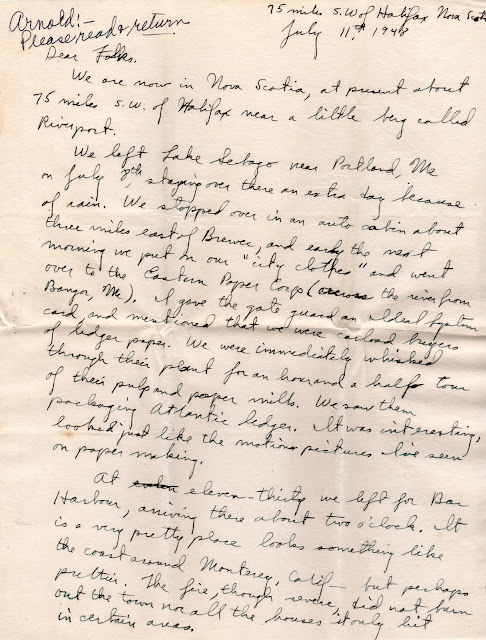 Arnold:-
Please read & return
75 miles S.W of Halifax Nova Scotia
July 11th 1948
Dear Folks.
We are now in Nova Scotia, at present about
75 miles S.W. of Halifax near a little berg called
Riverport.
We left Lake Sebago near Portland, Me
on July 7th, staying over there an extra day because
of rain. We stopped over in an auto cabin about
three miles east of Brewer, and early the next
morning we put on our "city clothes" and went
over to the Eastern Paper Corp (across the river from
Bangor, Me). I gave the gate guard an Ideal System
card, and mentioned that we were carload buyers
of ledger paper. We were immediately whisked
through their plant for an hour and a half tour
of their pulp and paper mills. We saw them
packaging Atlantic ledger. It was interesting,
looked just like the motion pictures I've seen
on paper making.
At eleven-thirty we left for Bar
Harbour, arriving there about two o'clock. It
is a very pretty place looks something like
the coast around Monterey, Calif- but perhaps
prettier. The fire, though severe, did not burn
out the town nor all the houses it only hit
in certain areas.